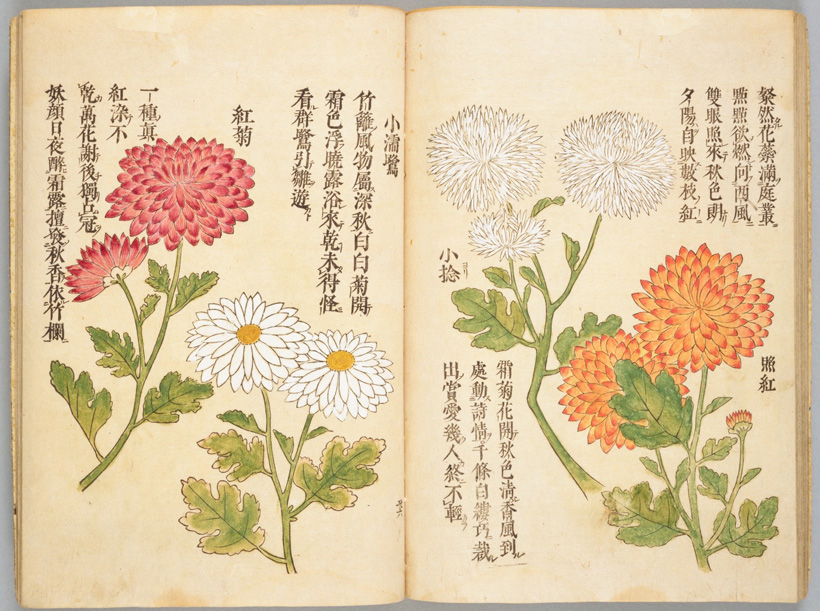 照紅
粲然花蘂滿庭叢
點點欲燃向西風
雙眼照來秋色朗
夕陽自映數枝紅
小捻
霜菊花開秋色清香風到
處動詩情千條白縷巧裁
出賞愛幾人終不輕
小濡鷺
竹籬風物屬深秋白白菊開
霜色浮曉露浴來乾未得怪
看群鷺引雛遊
紅菊
一種真
紅染不
乾萬花謝後獨占冠
妖顏日夜醉霜露擅發秋香依竹欄